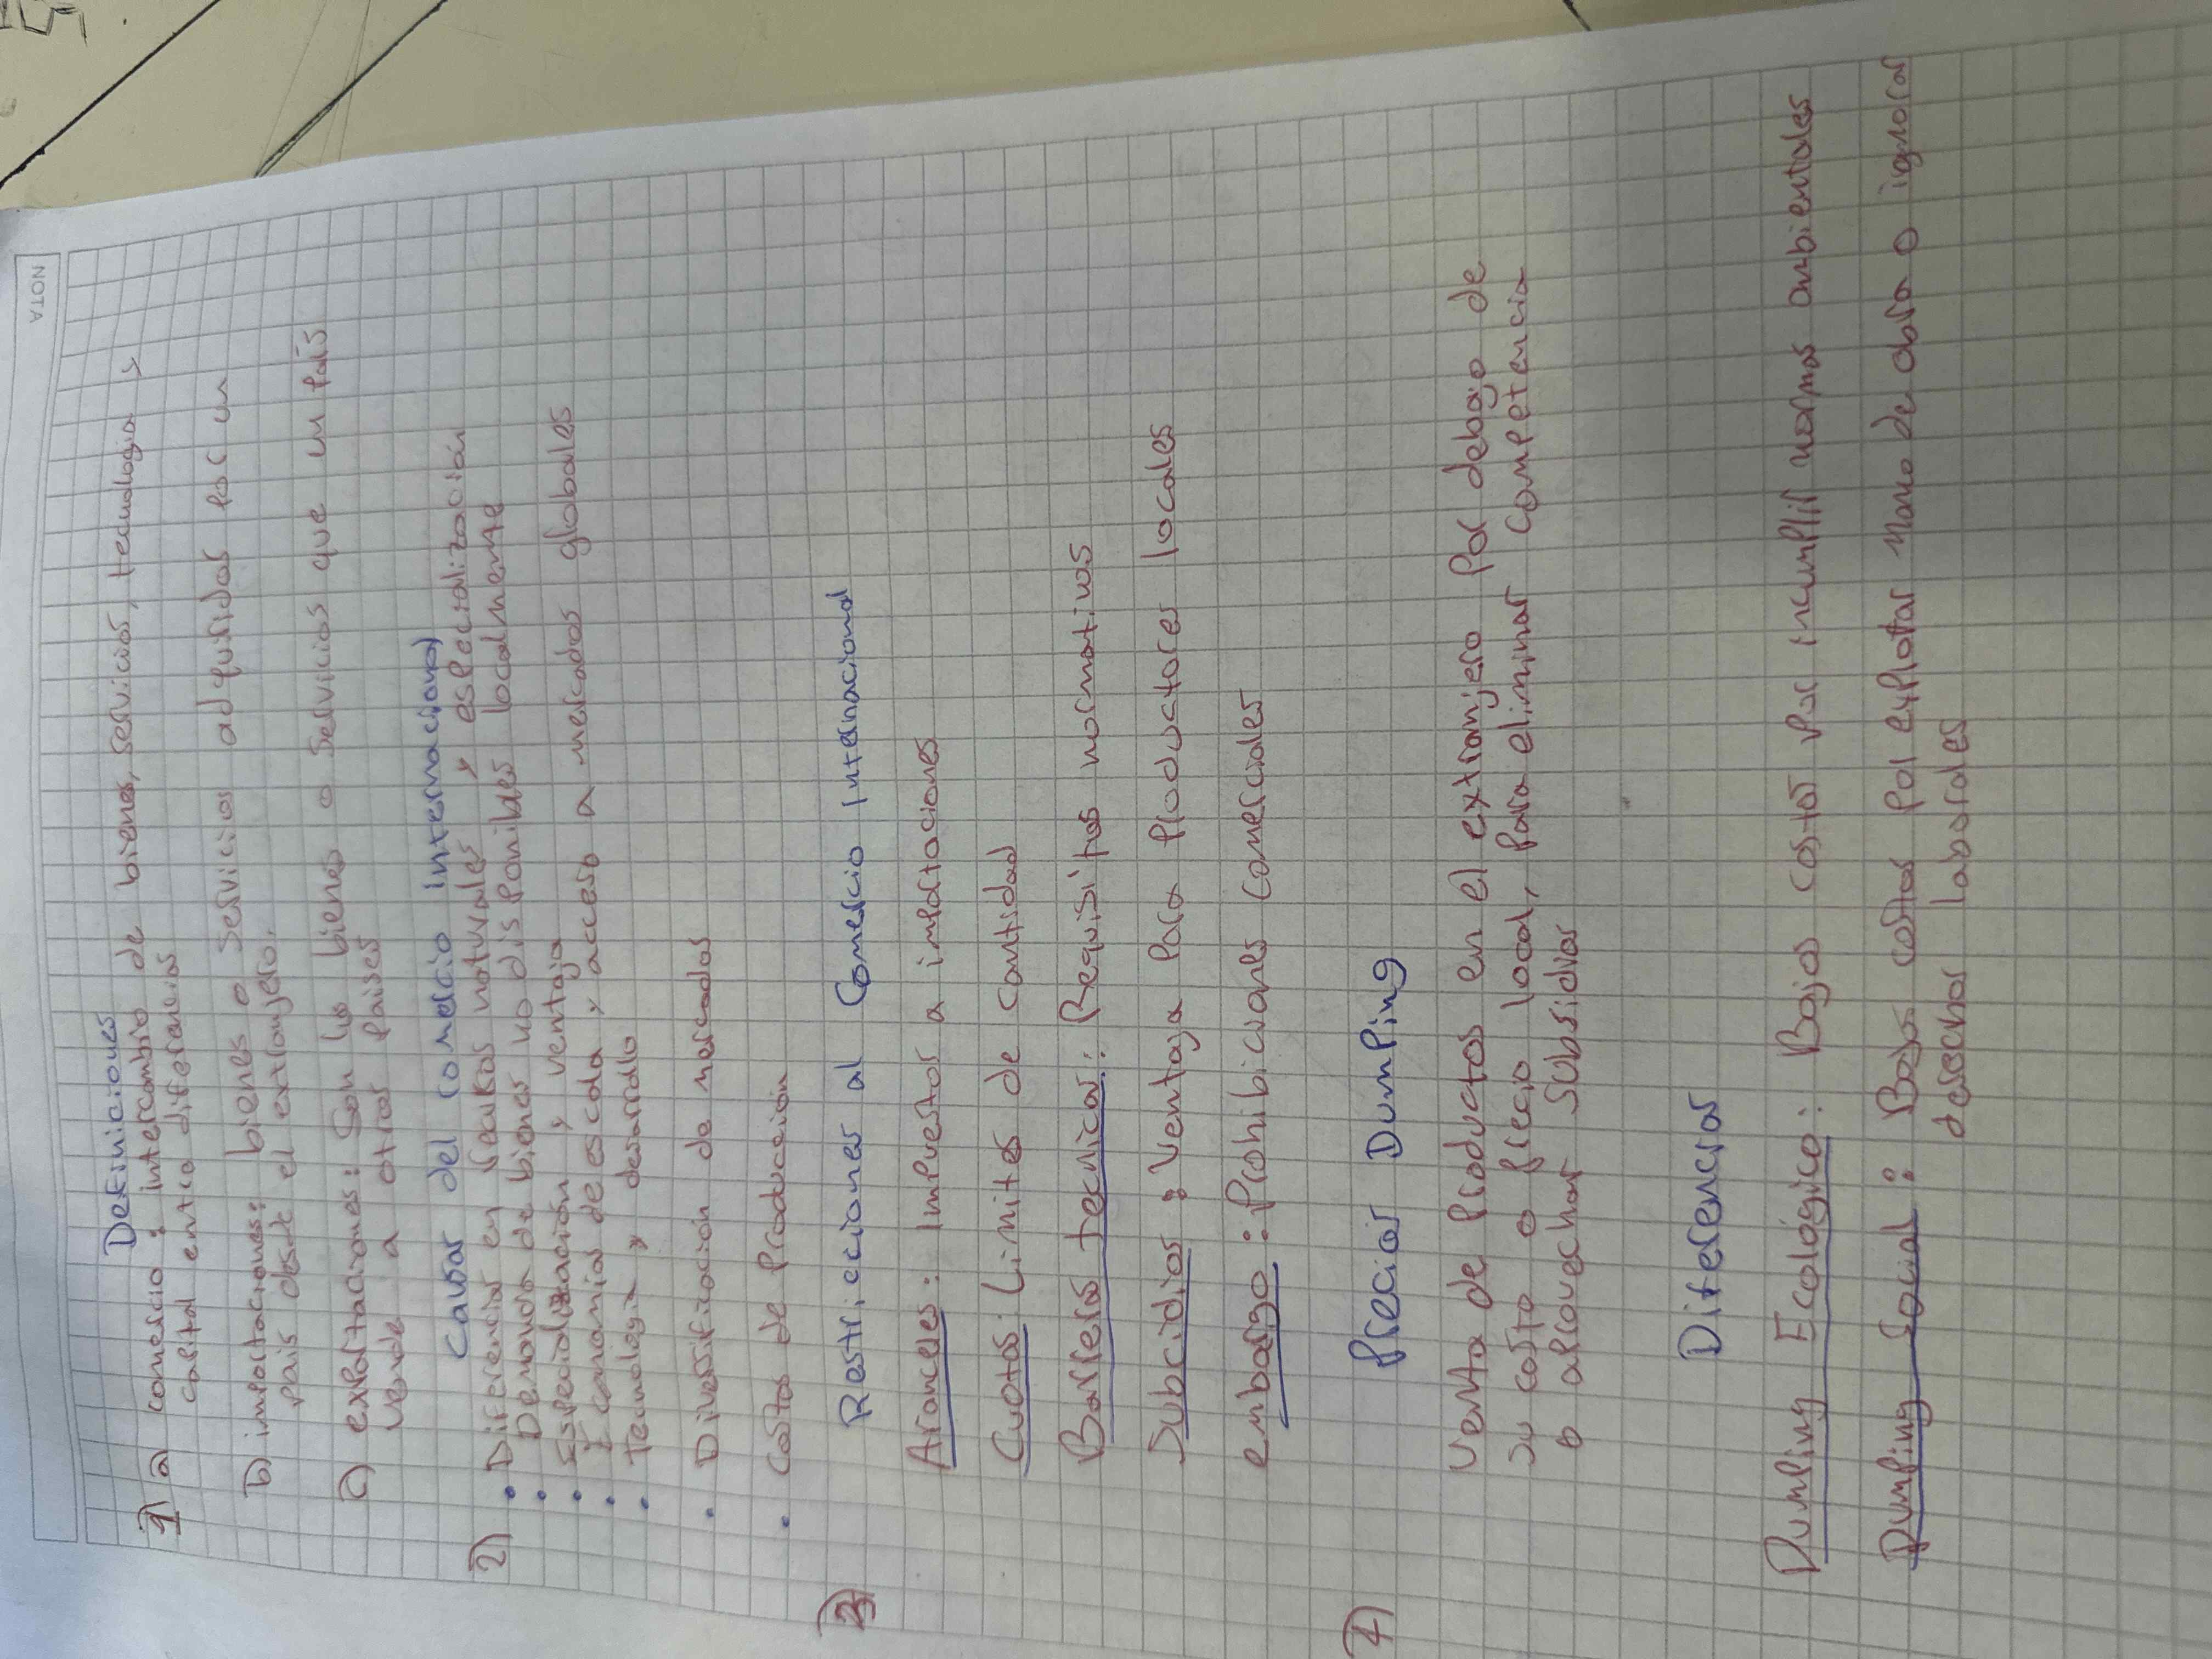 NOTA
Definiciones
1) a) comercio : intercambio de bienes, servicios, tecnologia y
capital entre diferencias
b) importaciones: bienes o servicios adquiridos por un
país desde el extranjero.
c) exportaciones: Son los bienes o Servicios que un País
vende a otros Paises
Causas del comercio internacional
2) • Diferencias en recursos naturales y especialización
• Demanda de bienes no disponibles localmente
• Especialización y ventaja
• Economias de escala y acceso a mercados globales
• tecnologia y desarrollo
• Diversificación de mercados
• costos de Producción
3) Restricciones al Comercio Internacional
Aranceles: Impuestos a importaciones
Cuotas: Limites de cantidad
Barreras tecnicas: Requisitos normativos
Subcidios : Ventaja Para Productores locales
embargo : Prohibiciones comerciales
4) Precios Dumping
Venta de Productos en el extranjero Por debajo de
su costo o Precio local, Para eliminar competencia
o aprovechar Subsidios
Diferencias
Dumping Ecológico: Bajos costos Por incumplir normas ambientales
Dumping Social : Bajos costos Por explotar mano de obra o ignorar
derechos laborales